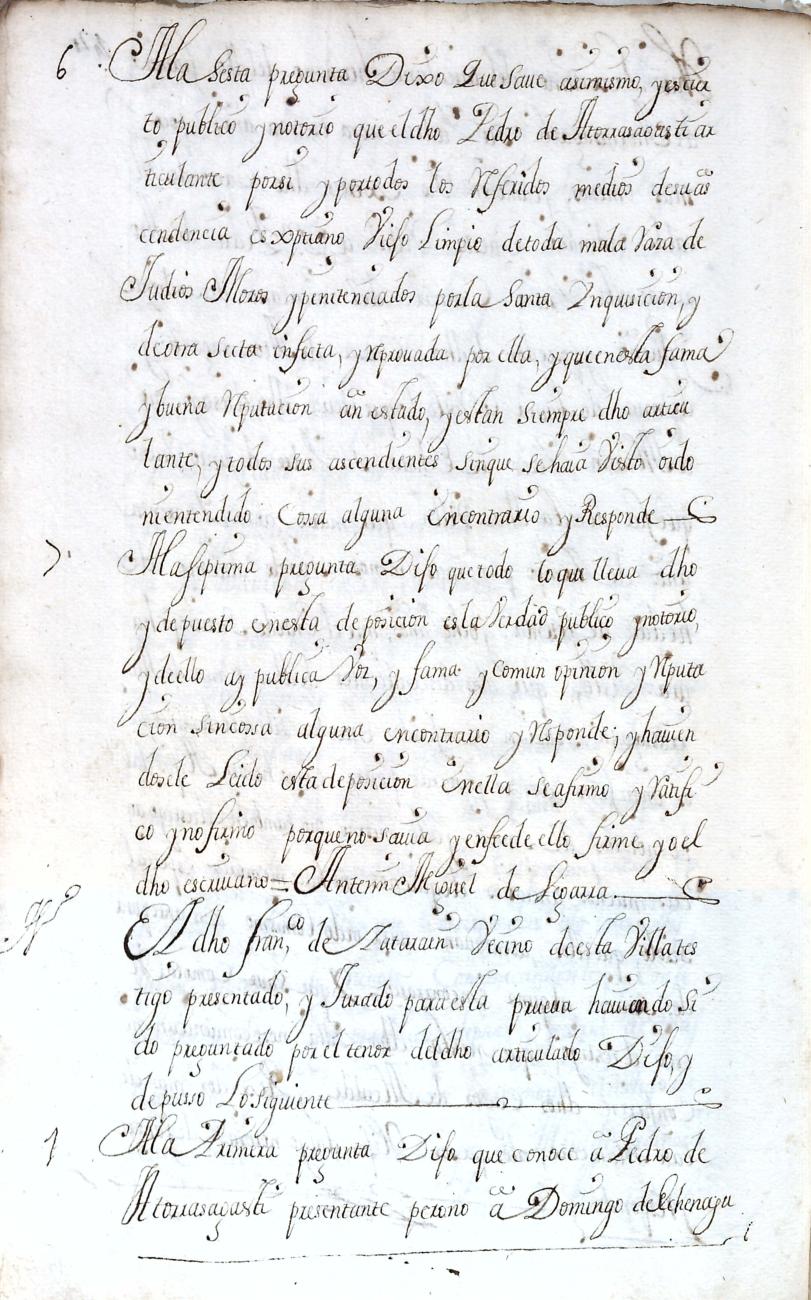 6 Ala Sesta pregunta Dixo Que save asimismo, y es cier
to publico y notorio que el dho Pedro de Atorrasagasti ar
ticulante por si y por todos los Referidos medios de su as
cendencia es xptiano Viejo Limpio de toda mala Raza de
Judios Moros y penitenciados por la Santa Inquisicion, y
de otra secta infecta, y Reprovada por ella, y que en esta fama
y buena Reputacion an estado, y estan siempre dho articu
lante, y todos sus ascendientes sin que se haia Visto oido
ni entendido Cossa alguna en contrario y Responde
7 A la septima pregunta Dijo que todo lo que lleva dho
y depuesto en esta deposicion es la Verdad publico y notorio,
y de ello ay publica Voz, y fama y comun opinion y Reputa
cion sin cossa alguna en contrario y Responde; y havien
dosele Leido esta deposicion en ella se afirmo y Ratifi
co y no firmo porque no savia y en fee de ello firme yo el
dho escrivano = Antemi Miguel de Legarra
El dho Fran.co de Zatarain Vecino de esta Villa tes
tigo presentado, y Jurado para esta prueva haviendo Si
do preguntado por el tenor del dho articulado Dijo, y
depusso Lo Siguiente
1 A la Primera pregunta Dijo que conoce a Pedro de
Atorrasagasti presentante pero no a Domingo de Echenagu